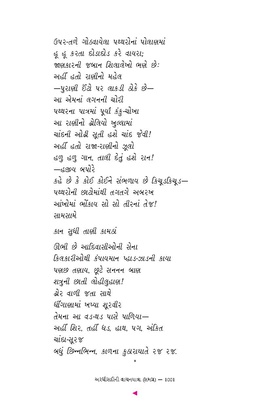 ઉપર-તળે ગોઠવાયેલા પથ્થરોનાં પોલાણમાં
હૂ હૂ કરતા દોડાદોડ કરે વાયરા;
જાણકારની જબાન શિલાલેખો ભણે છેઃ
અહીં હતો રાણીનો મહેલ
—પુરાણી ઈંટો પર લાકડી ઠોકે છે—
આ એમનાં લગનની ચોરી
પથ્થરના પાત્રમાં પૂર્વા કંકુ-ચોખા
આ રાણીનો ઢોલિયો ખુલ્લામાં
ચાંદની ઓઢી સૂતી હશે ચાંદ જેવી!
અહીં હતો રાજા-રાણીનો ઝૂલો
હળુ હળુ ગાન, તાલી દેતું હશે રાન!
—હજીય બપોરે
કહે છે કે કોઈ કોઈને સંભળાય છે કિચૂડકિચૂડ—
પથ્થરોની છાટોમાંથી તગતગે અબરખ
આંખોમાં ભોંકાય સો સો તીરનાં તેજ!
સામસામે
કાન સુધી તાણી કામઠાં
ઊભી છે આદિવાસીઓની સેના
કિલકારીઓથી કંપાવમાન પહાડ-ઝાડની કાયા
પણછ તણાય, છૂટે સનનન બાણ
શત્રુની છાતી લોહીલુહાણ!
ઢોર વાળી જતા સાથે
ધીંગાણામાં ખપ્યા શૂરવીર
તેમના આ વડ-થડ પાસે પાળિયા—
અહીં શિર, તહીં ધડ, હાથ, પગ, અંકિત
ચાંદા-સૂરજ
બધું છિન્નભિન્ન, કાળના કુઠારાઘાતે રજ રજ.